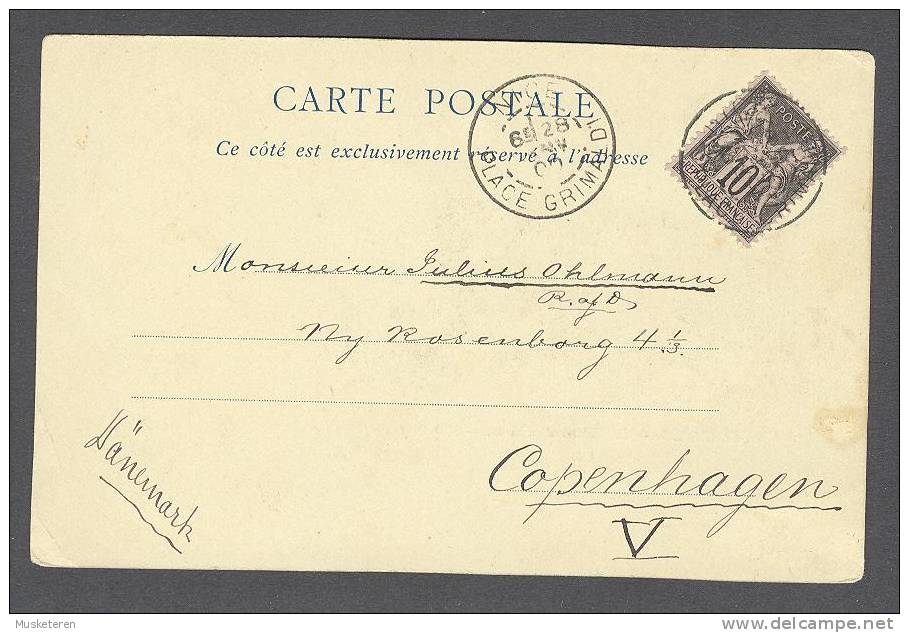 CARTE POSTALE
Ce côté est exclusivement réservé à l'adresse
NICE
28
PLACE GRIMALDI
POSTES
10
REPUBLIQUE FRANÇAISE
Monsieur Julius Ohlmann
R. af D.
Ny Rosenborg 4 1/3.
Copenhagen
V
Dänemark
Musketeren
delcampe.net